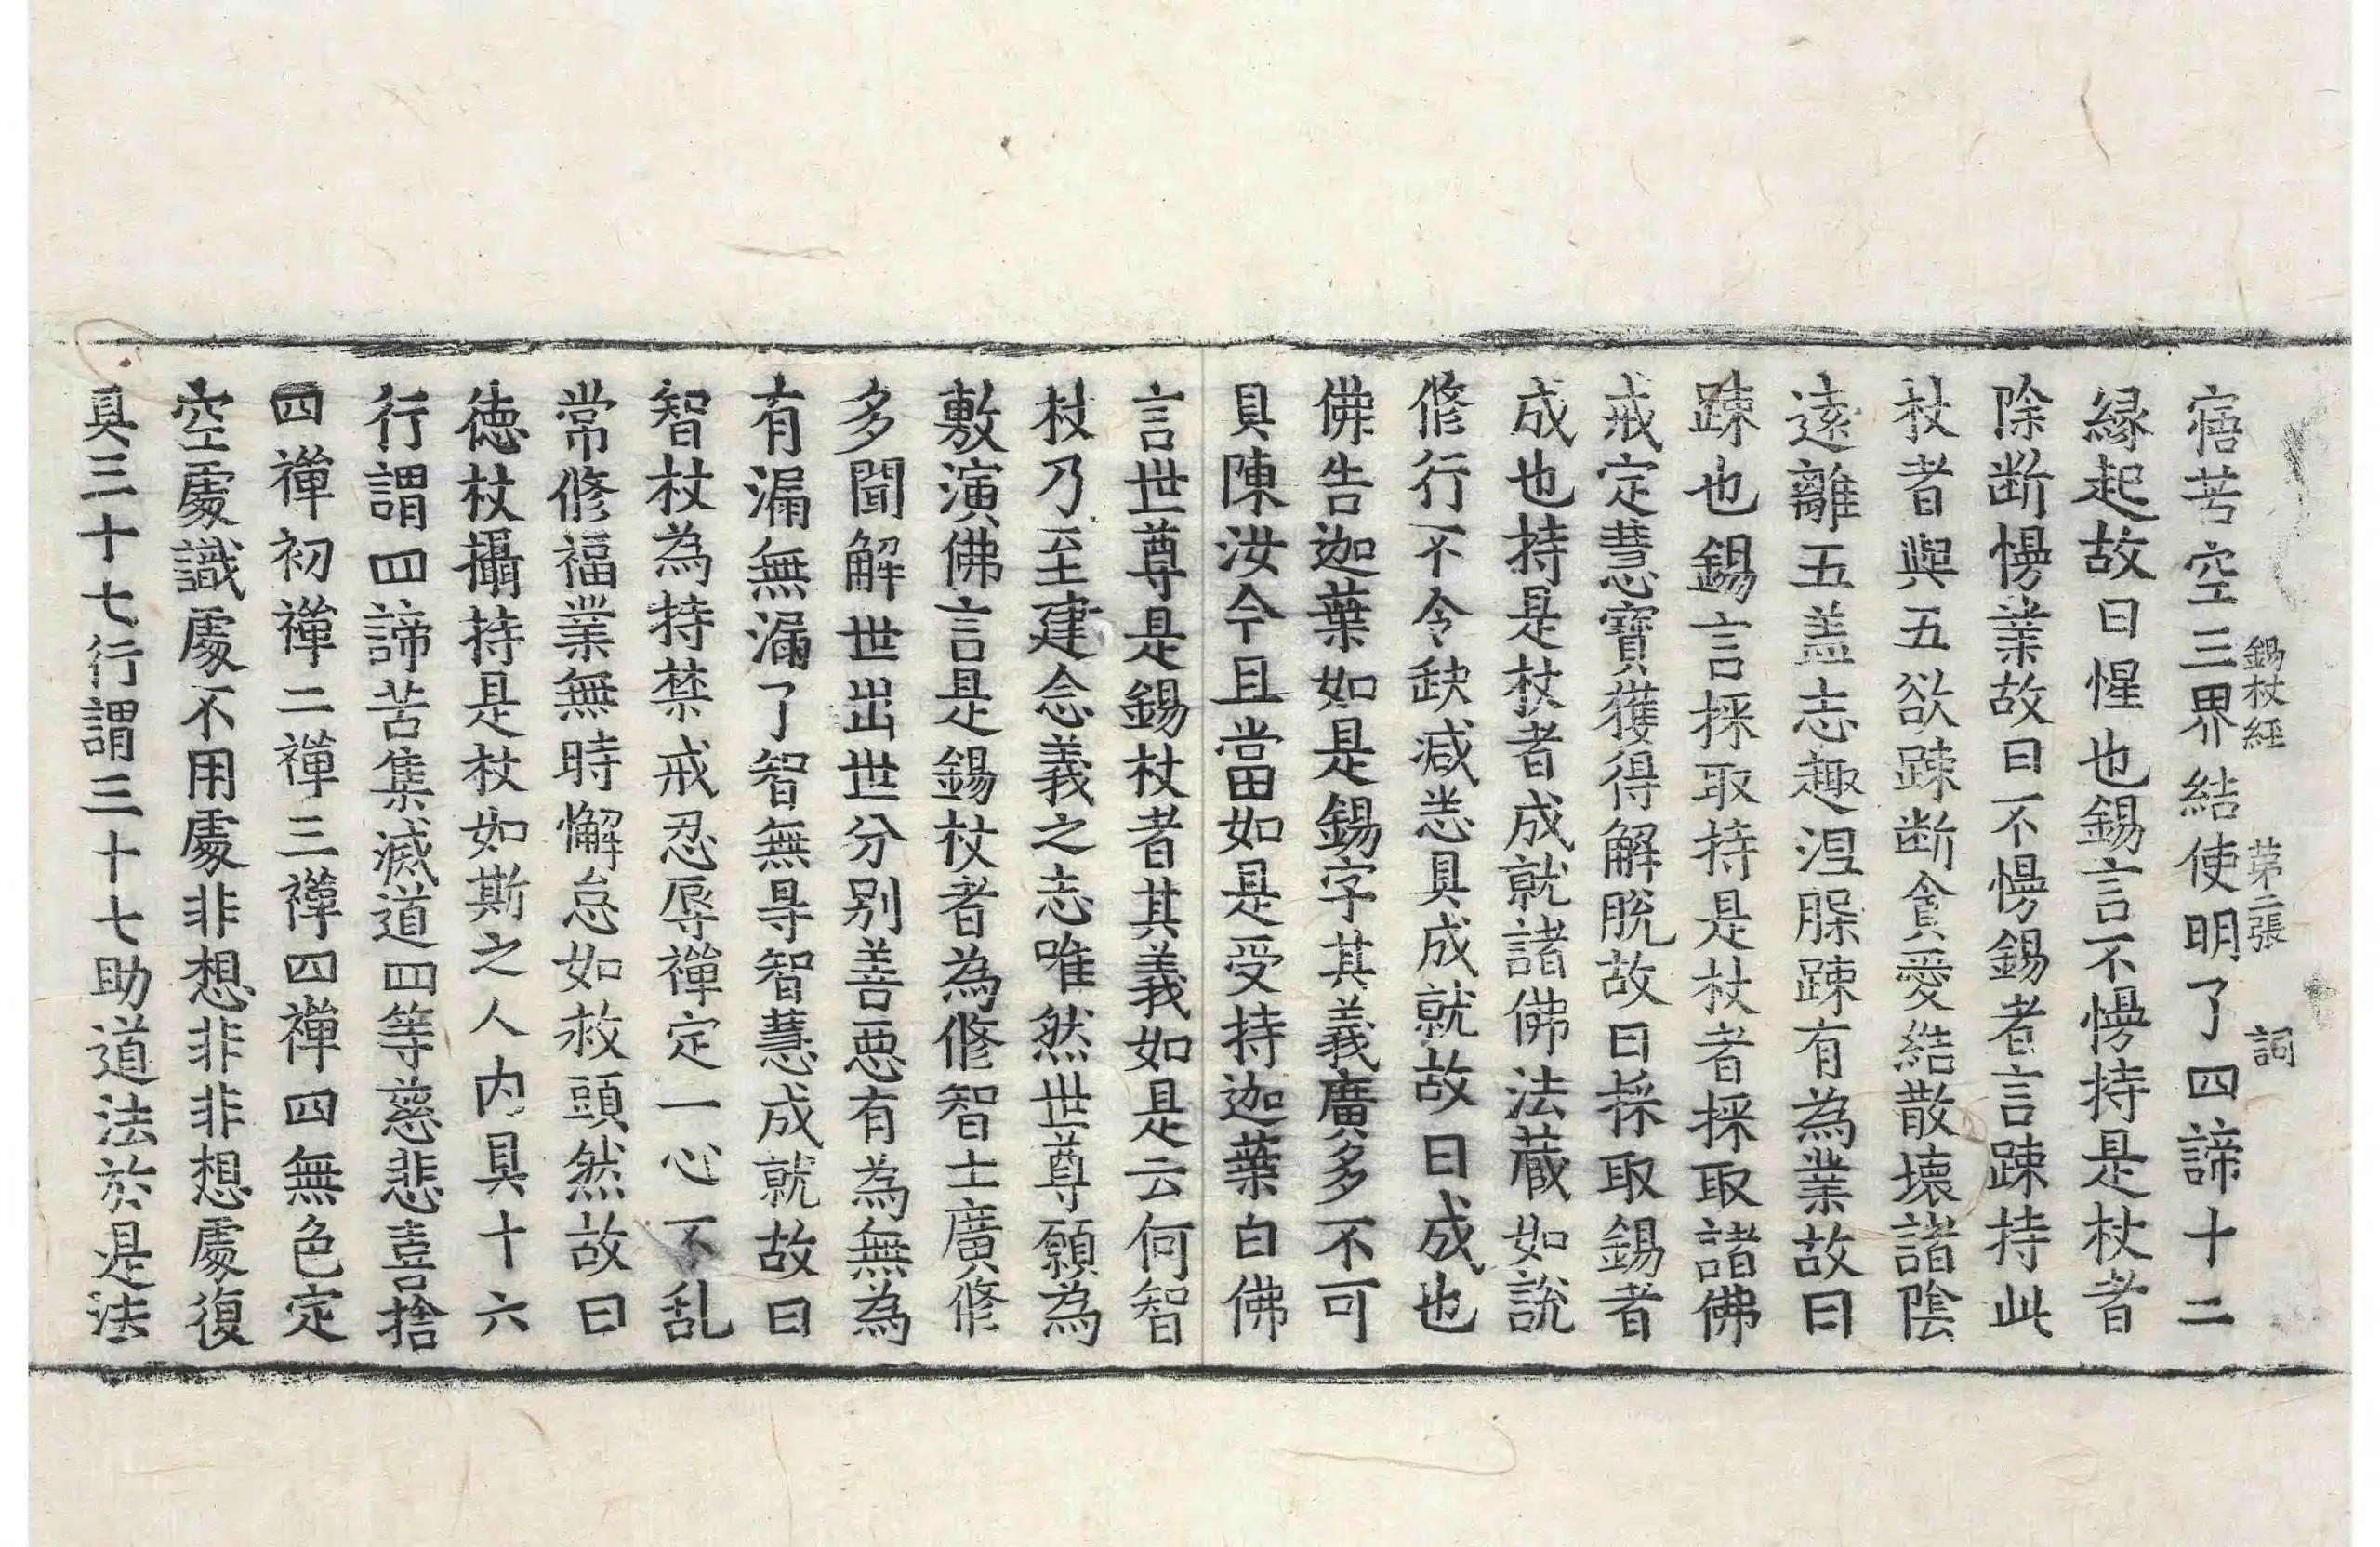 錫杖經 第二張 詞
寤苦空三界結使明了四諦十二
縁起故曰惺也錫言不慢持是杖者
除断慢業故曰不慢錫者言踈持此
杖者與五欲踈断貪愛結散壞諸陰
逺離五盖志趣涅槃踈有為業故曰
踈也錫言採取持是杖者採取諸佛
戒定慧寶獲得解脫故曰採取錫者
成也持是杖者成就諸佛法蔵如說
修行不令缺减悉具成就故曰成也
佛告迦葉如是錫字其義廣多不可
具陳汝今且當如是受持迦葉白佛
言世尊是錫杖者其義如是云何智
杖乃至建念義之志唯然世尊願為
敷演佛言是錫杖者為修智士廣修
多聞解世出世分別善惡有為無為
有漏無漏了智無㝵智慧成就故曰
智杖為持禁戒忍辱禪定一心不乱
常修福業無時懈怠如救頭然故曰
徳杖攝持是杖如斯之人内具十六
行謂四諦苦集滅道四等慈悲喜捨
四禪初禪二禪三禪四禪四無色定
空處識處不用處非想非非想處復
具三十七行謂三十七助道法於是法